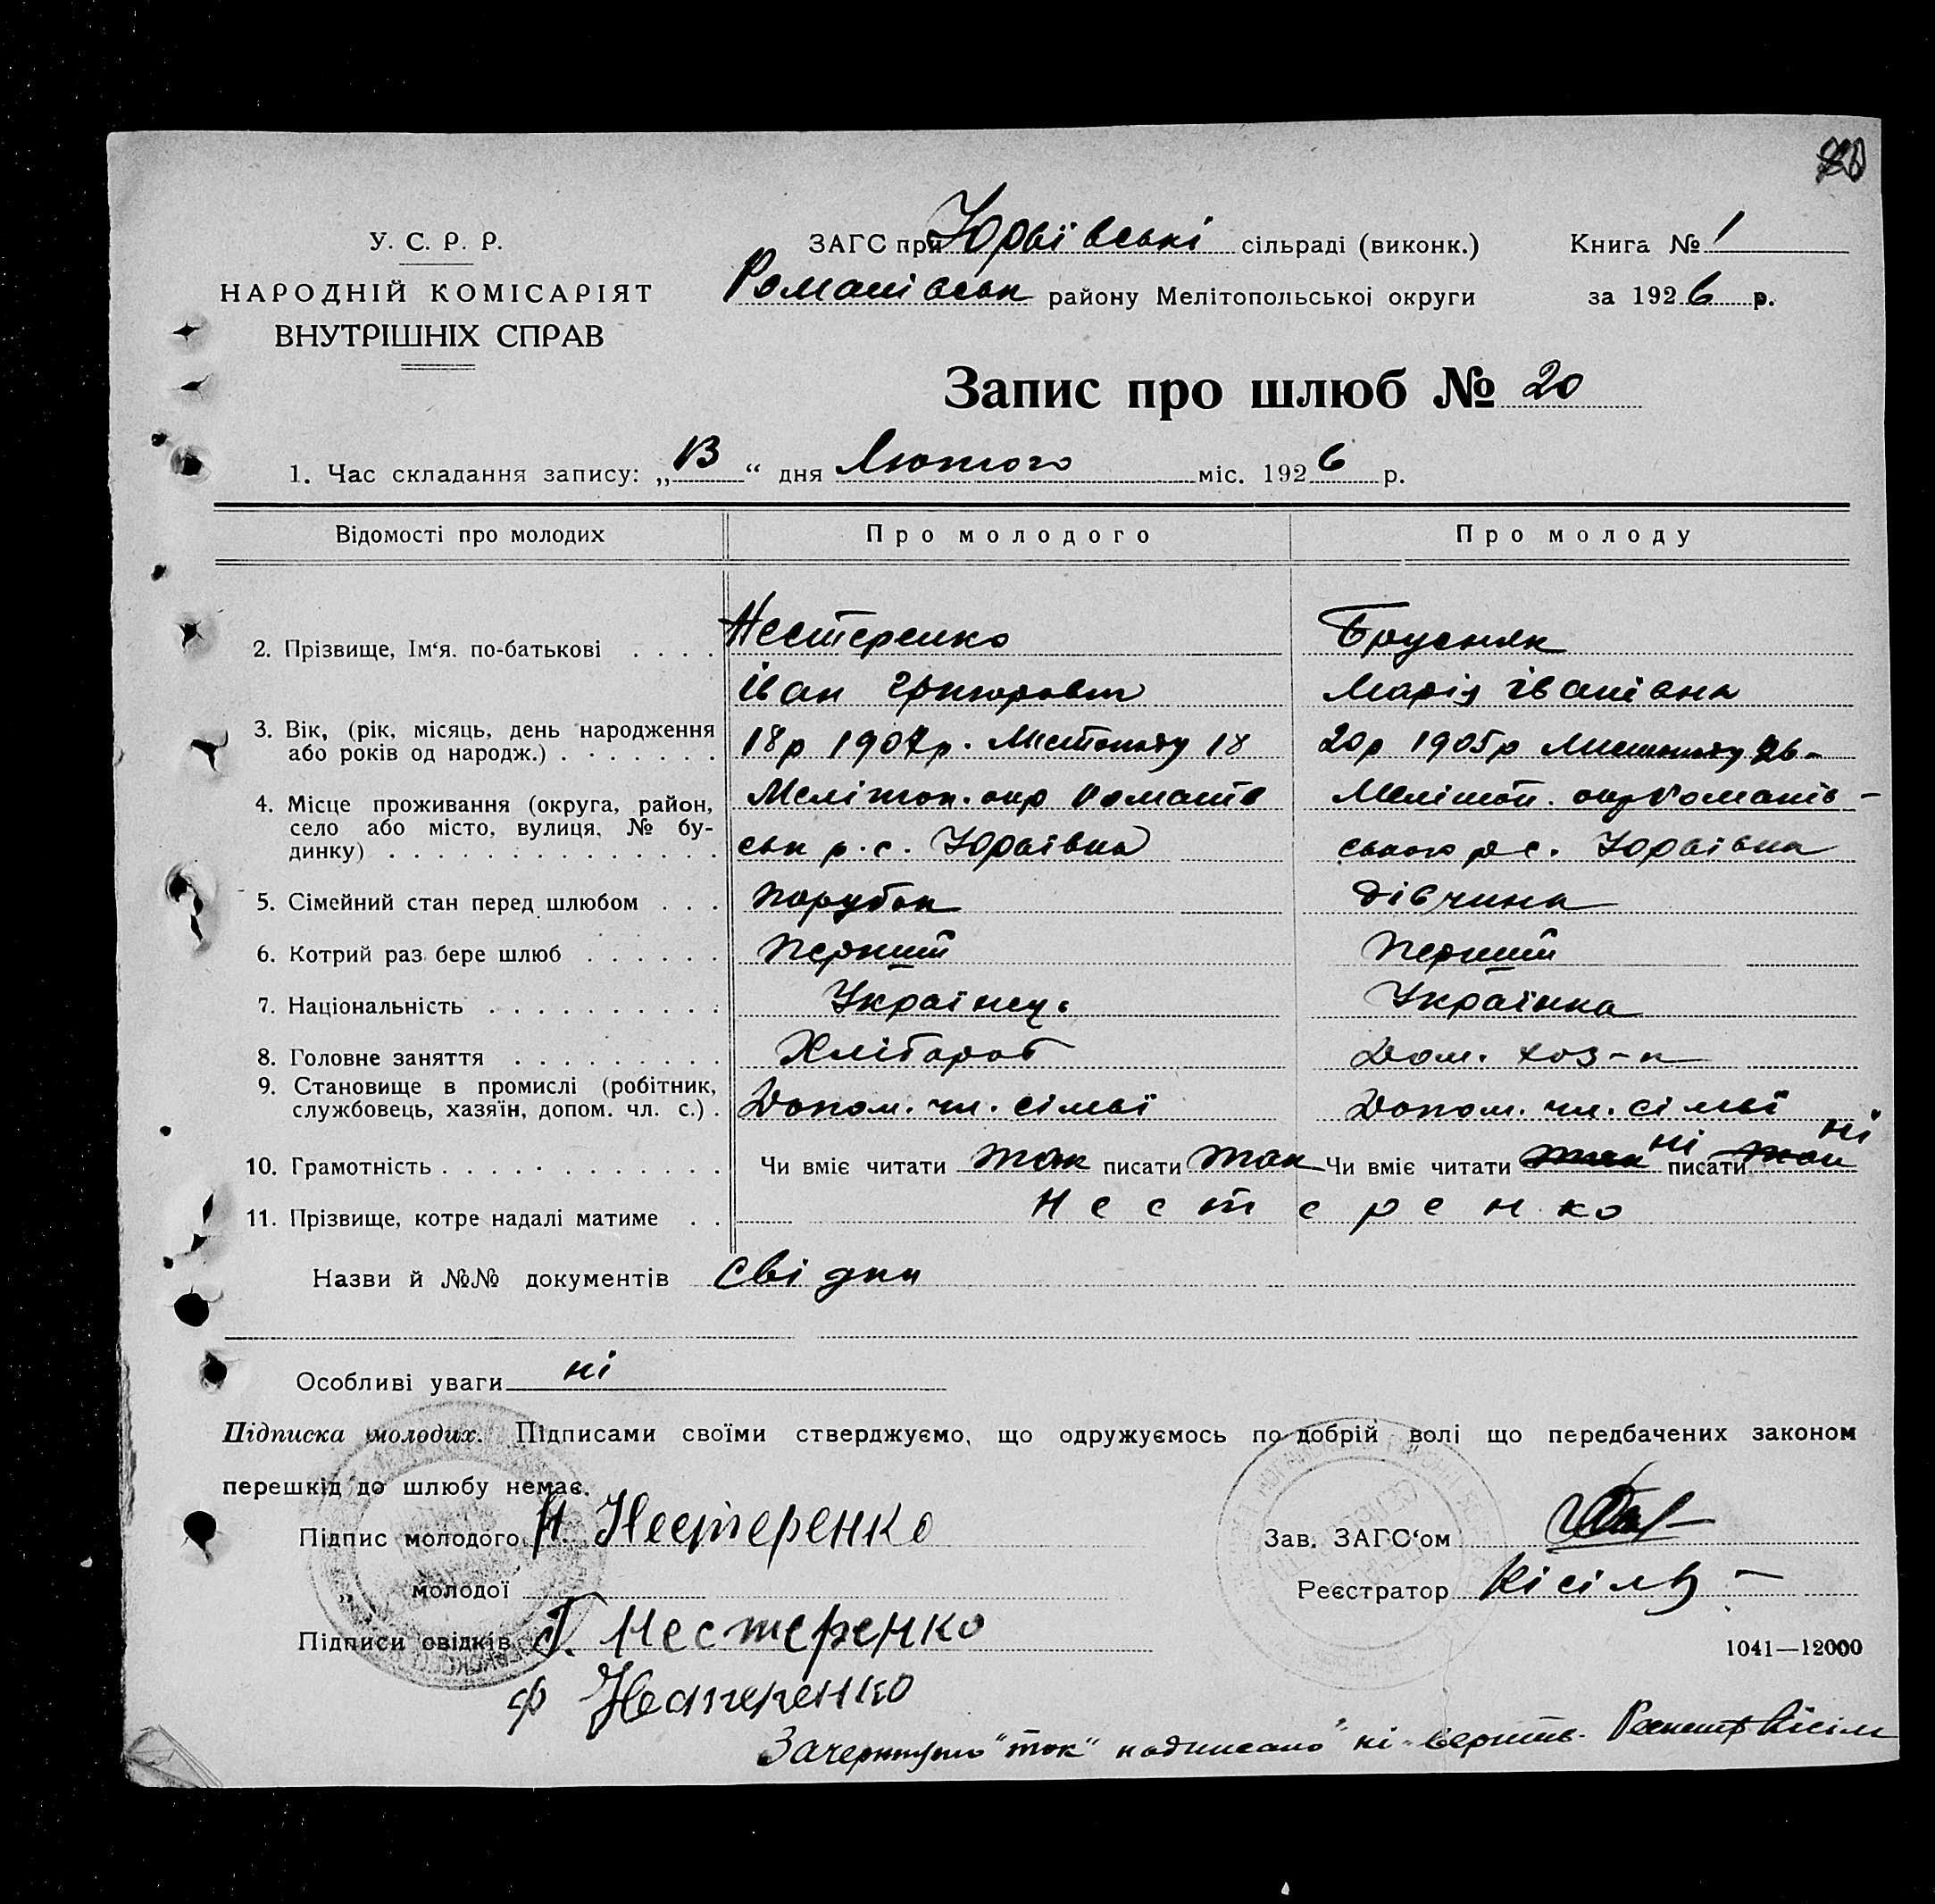 У. С. Р. Р.
НАРОДНІЙ КОМІСАРІЯТ
ВНУТРІШНІХ СПРАВ
ЗАГС при Юрьївські сільраді (виконк.) Книга № 1
Романівськ району Мелітопольської округи за 1926 р.
Запис про шлюб № 20
1. Час складання запису: „13“ дня Лютого міс. 1926 р.
Відомості про молодих Про молодого Про молоду
2. Прізвище, Ім‘я. по-батькові Нестеренко Брусняк
Іван Григоровіч Марія Іванівна
3. Вік, (рік, місяць, день народження або років од народж.) 18р 1907р. Листопаду 18 20р 1905р Листопаду 26
4. Місце проживання (округа, район, село або місто, вулиця, № будинку) Мелітоп. окр Романів Мелітоп. окр Романів-
ськ р. с. Юрьївка ського р с. Юрьївка
5. Сімейний стан перед шлюбом Парубок Дівчина
6. Котрий раз бере шлюб Перший Перший
7. Національність Українець Українка
8. Головне заняття Хлібороб Дом. хоз-к
9. Становище в промислі (робітник, службовець, хазяїн, допом. чл. с.) Допом. чл. сімьї Допом. чл. сімьї
10. Грамотність Чи вміє читати так писати так Чи вміє читати так ні писати так ні
11. Прізвище, котре надалі матиме Нестеренко
Назви й №№ документів Свідки
Особливі уваги ні
Підписка молодих. Підписами своїми стверджуємо, що одружуємось по добрій волі що передбачених законом
перешкід до шлюбу немає.
Підпис молодого И. Нестеренко Зав. ЗАГС‘ом
„ молодої Реєстратор Кісіль
Підписи свідків Г. Нестеренко
1041—12000
Ф Нестеренко
Зачеркнуто "так" надписано "ні" вернть. Реєстр Кісіль